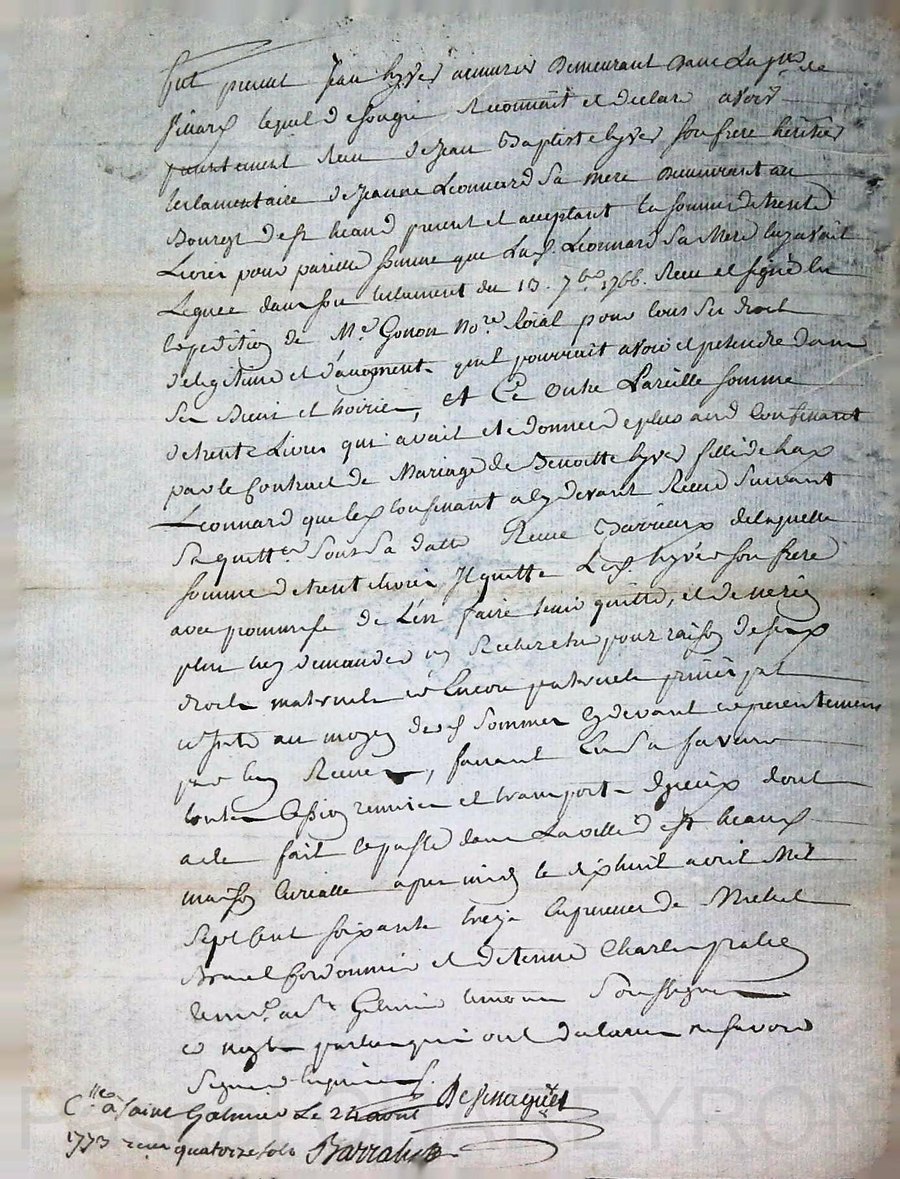 fut present Jean hyver armurier Demeurant dans la psse de
lequel de son gré Reconnait et declare avoir
presentement Reçu de Jean Baptiste hyver son frere héritier
testamentaire de Jeanne Leonnard Sa mere Demeurant au
Bourg de st heand present et acceptant la somme de trente
Livres pour pareille somme que La d. Leonnard Sa Mere luy avait
Leguee dans son testament du 13. 7bre 1766. Reçu et signé en
expedition de Me. Gonon Nore. Roial pour tous ses droit
de legitime et d'augment quil pourrait avoir et pretendre dans
ses Biens et hoirie, et Ce Outre Pareille somme
de trente Livres qui avait ete donnee au Confessant
par le Contract de Mariage de Benoitte hyver fille de
Leonnard que le Confessant a cy devant Receu suivant
Sa quittce. Sous Sa datte Reçue Barrieux de laquelle
somme de trente livres Il quitte Led. hyver son frere
avec promesse de L'en faire tenir quitte, et de ne rien
plus luy demander ny Rechercher pour raison de ses
droits maternels et Encore paternels principal
et au moyen des d. sommes cy devant et presentement
par luy Reçues, faisant En Sa faveur
toutes Cession remises et transports Requis dont
acte fait et passé dans La ville de st heand
maison Curialle apres midy le dix huit avril Mil
sept Cent soixante treize En presences de Michel
Brunel Cordonnier et d'etienne Charles
Galmier temoins Soussignes
et non les parties qui ont declaré ne savoir
signer
Clleé à Saint Galmier Le 24 aout Desmagnes
1773 reçu quatorze sols Barralon